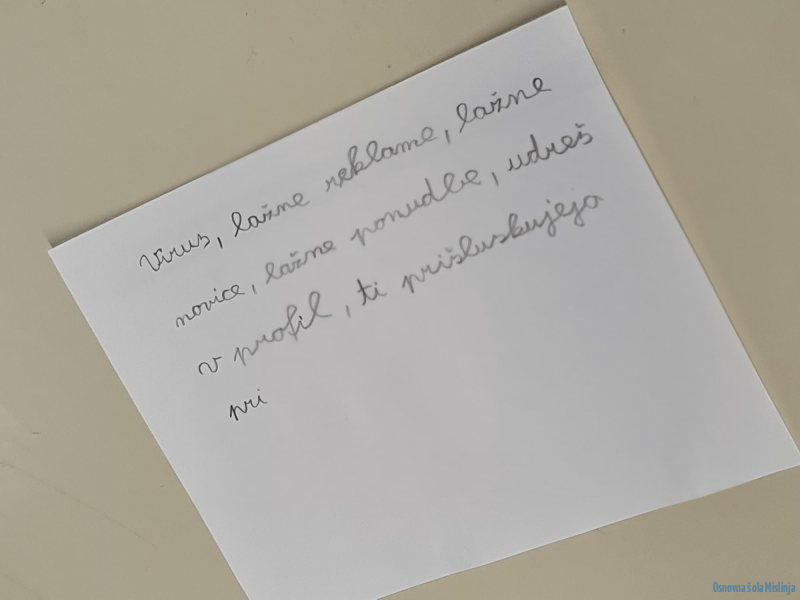 virus, lažne reklame, lažne
novice, lažne ponudbe, udreš
v profil, ti prisluskujeja
pri
Osnovna šola Mislinja